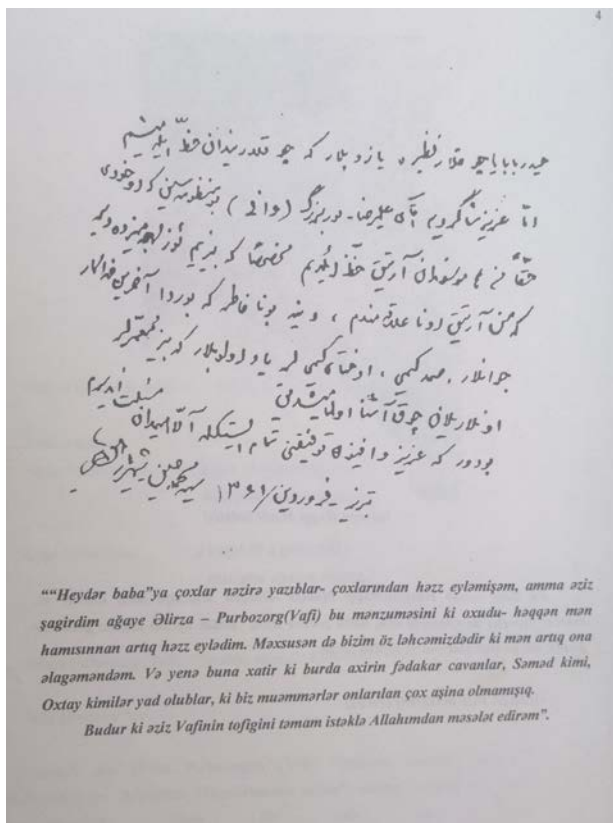 4
حیدربابایا چوقلار نظیره یازوبلار که چوقلاریندان حظّ ایله میشم
امّا عزیز شاگردیم آقای علیرضا - پوربزرگ (وافی) بو منظومه سین که اوخودی
حقّاً من هاموسوندان آرتیق حظّ ایلدیم مخصوصاً که بیزیم ئوز لهجه میزده دیر
که من آرتیق اونا علاقه مندم ، و ینه بونا خاطر که بوردا آخرین فداکار
جوانلار . صمد کیمی ، اوختای کیمی لر یاد اولوبلار که بیز معمّرلر
اونلاریلان چوق آشنا اولمامیشدیق
بودور که عزیز وافینین توفیقینی تمام ایستکله آللاهیمدان مسئلت ائدیرم
تبریز - فروردین/ ۱۳۶۱ سید محمدحسین شهریار
““Heydər baba”ya çoxlar nəzirə yazıblar- çoxlarından həzz eyləmişəm, amma əziz
şagirdim ağaye Əlirza – Purbozorg(Vafi) bu mənzuməsini ki oxudu- həqqən mən
hamısınnan artıq həzz eylədim. Məxsusən də bizim öz ləhcəmizdədir ki mən artıq ona
əlagəməndəm. Və yenə buna xatir ki burda axirin fədakar cavanlar, Səməd kimi,
Oxtay kimilər yad olublar, ki biz muəmmərlər onlarılan çox aşina olmamışıq.
Budur ki əziz Vafinin tofigini təmam istəklə Allahımdan məsələt edirəm”.